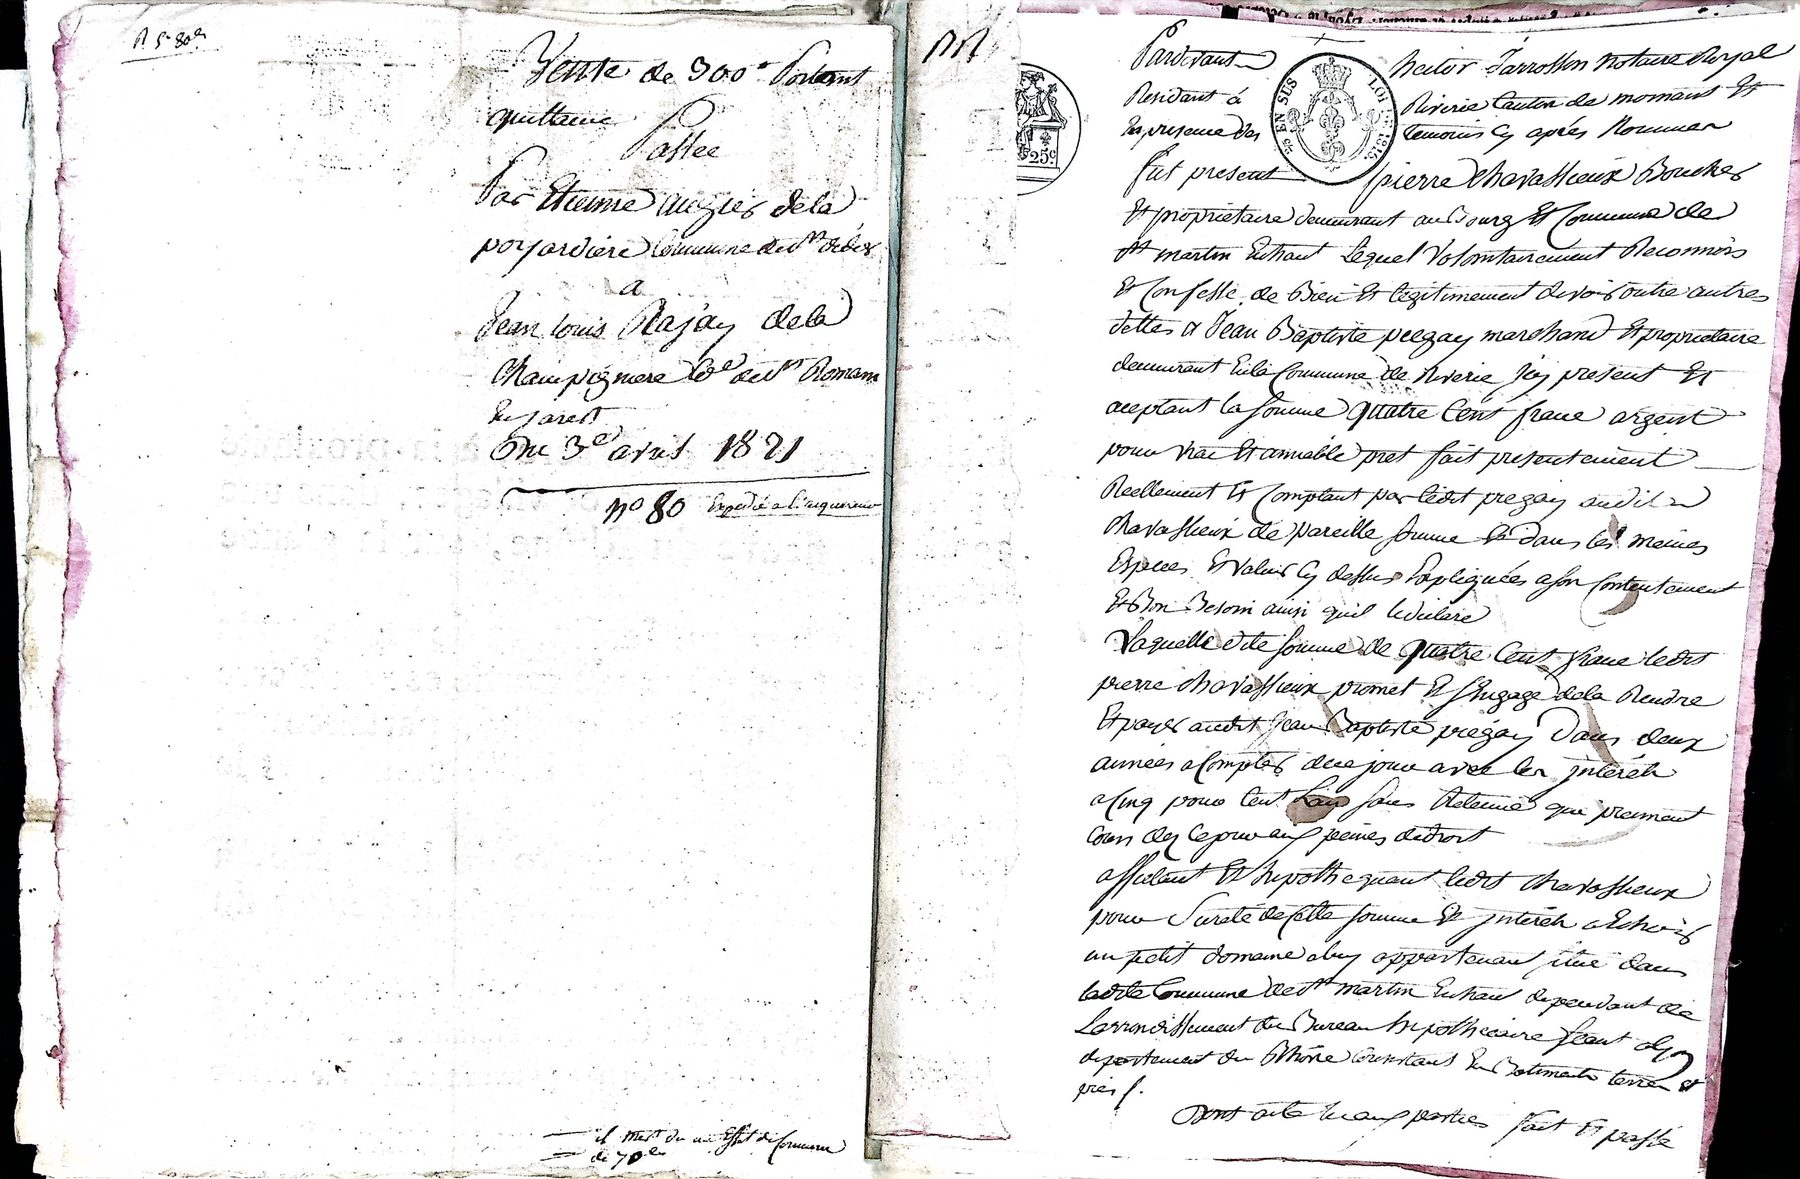 R 5 80
Vente de 300 Portant
quittance
Passée
Par Etienne augier de la
poyardiere Commune de st didier
a
Jean Louis Rajay de la
Champignere Cne de st Romain
En jarest
Du 3e avril 1821
no 80 Expédié a l'acquereur
il m'est du un Effet de Comerce
de 70
Pardevant hector Jarrosson notaire Royal
Residant à Riverie Canton de mornant Et
En presence des temoins Cy après Nommer
fut present pierre Chavassieux Boucher
Et propriétaire demeurant au Bourg Et Commune de
st martin Enhaut Lequel Volontairement Reconnois
Et Confesse de Bien Et légitimement devoir outre autres
dettes a Jean Baptiste pregay marchand Et propriétaire
demeurant En la Commune de Riverie Jcy present Et
aceptant la somme quatre Cent franc argent
pour vrai Et amiable pret fait presentement
Reellement Et Comptant par ledit pregay audit
Chavassieux de pareille somme Et dans les meines
Especes Et valeur Cy dessus Expliquées a son Contentement
Et Bon Besoin ainsi quil le declare
Laquelle dite somme de quatre Cent franc ledit
pierre Chavassieux promet Et s'Engage de la Rendre
Et payer audit Jean Baptiste prégay Dans deux
années a Compter de ce jour avec les jntérêts
a Cinq pour Cent L'an sans Retenue qui prennent
Cours dez ce jour aux peines de droit
affectant Et hypothequant ledit Chavassieux
pour Sureté de Cette somme Et jntérêts a Echoir
un petit domaine a luy appartenant situé dans
ladite Commune de st martin Enhaut dependant de
Larrondissement du Bureau hypothécaire seant a Lyon
departement du Rhône Consistant En Batiments terres et
prés.
Dont acte lu aux parties fait Et passé
EN SUS
LOI 1816
25c.